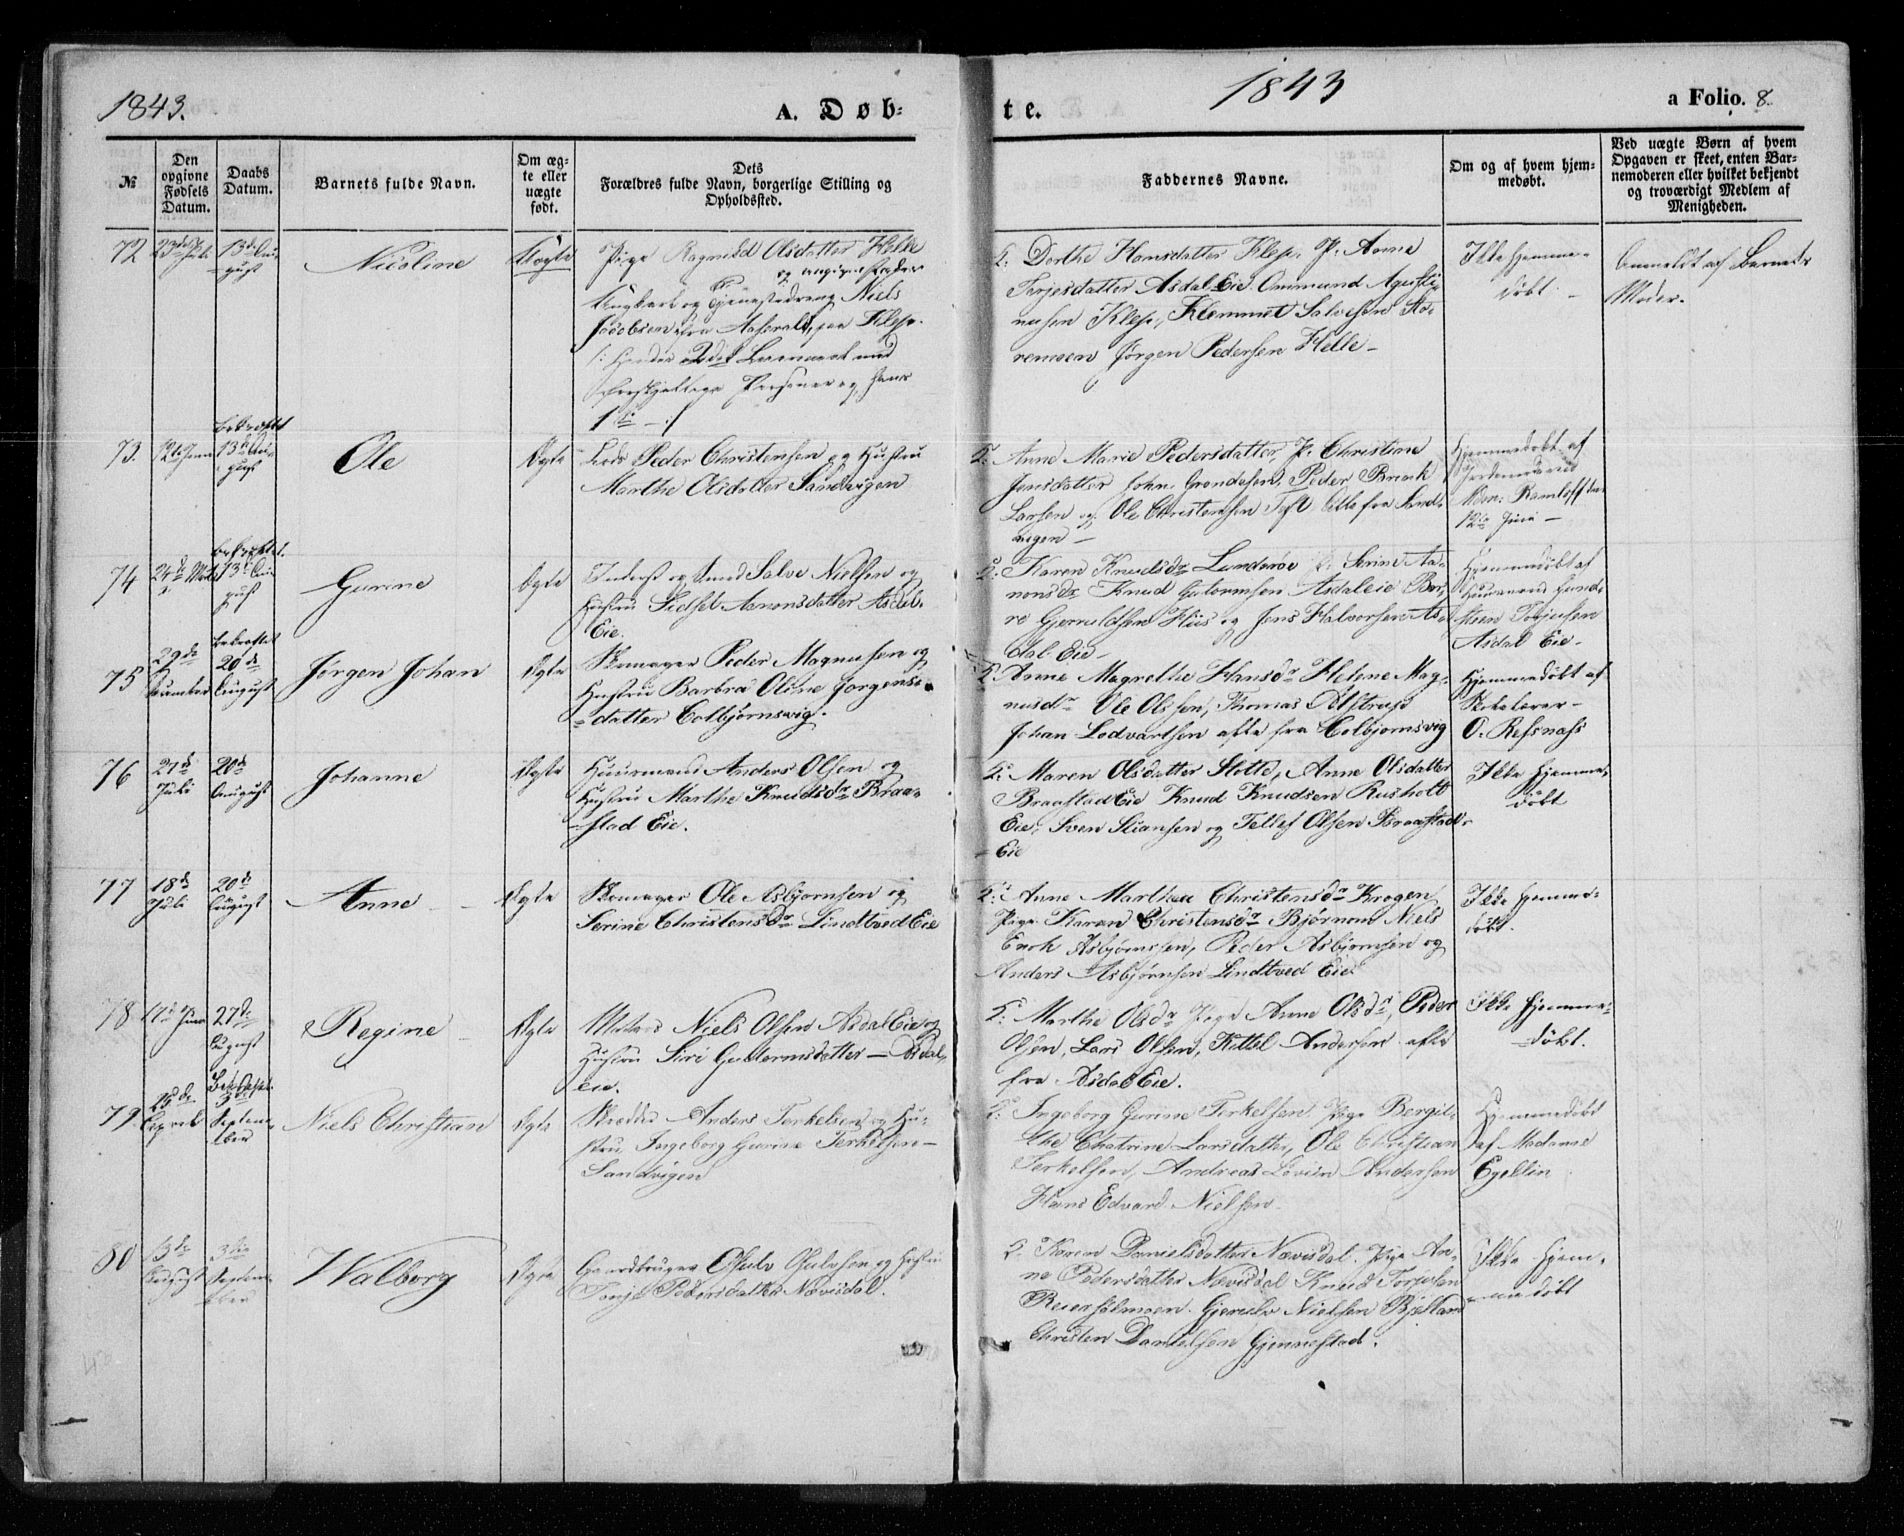 1843.
A. Døb-
te.
1843
a Folio. 8.
№
Den opgivne Fødsels Datum.
Daabs Datum.
Barnets fulde Navn.
Om ægte eller uægte født.
Dets Forældres fulde Navn, borgerlige Stilling og Opholdssted.
Faddernes Navne.
Om og af hvem hjemmedøbt.
Ved uægte Børn af hvem Opgaven er skeet, enten Barnemoderen eller hvilket bekjendt og troværdigt Medlem af Menigheden.
72
23de Juli
13de August
Nicoline
Uægte
Pige Ragnild Olsdatter Helle
og angiven Fader
Ungkarl og Tjenestedreng Niels
Jacobsen fra Aaseral, paa Klep.
1ste
F: Dorthe Hansdatter Klep. P. Anne
Terjesdatter Asdal Eie. Ommund Agusti-
nusen Klep, Klemmet Salvesen
Jørgen Pedersen Helle
Ikke hjemme-
døbt
Anmeldt af Barnets
Moder.
73.
12te Juni
bekræftet
13de August
Ole
Ægte
Lods Peder Christensen og Hustru
Marthe Olsdatter Sandvigen
F: Anne Marie Pedersdatter, P. Christiane
Jensdatter John Grondesen, Peder Brink
Larsen og Ole Christensen Toft alle fra Sand-
vigen
Hjemmedøbt af
Jordemoder
Mdm: Ramloff den
12te Juni
74
24de
bekræftet
13de August
Gurine
Ægte
Inderst og Smed Salve Nielsen og
Hustru Sidsel Aanonsdatter Asdal
Eie.
F: Karen Knudsdr Lunderøe P. Serine Aa-
nonsdr Knud Gutormsen Asdaleie Bør-
re Gjeruldsen Hiis og Jens Halvorsen As-
dal Eie
Hjemmedøbt af
Huusmand
Torjusen
Asdal Eie
75
29de
bekræftet
20de August
Jørgen Johan
Ægte
Skomager Peder Magnusen og
Hustru Barbra Oline Jørgens-
datter Colbjørnsvig.
F: Anne Magrethe Hansdr Helene Mag-
nusdr Ole Olsen, Thomas Alstrup
Johan Lodvartsen alle fra Colbjornsvig
Hjemmedøbt af
Skolelærer
O. Refsnæss
76
27de Juli
20de August
Johanne
Ægte
Huusmand Anders Olsen og
Hustru Marthe Knudsdr Braa-
stad Eie.
F: Maren Olsdatter Slotte, Anne Olsdatter
Braastad Eie Knud Knudsen Rusholt
Eie, Sven Stiansen og Tellef Olsen Braastad-
Eie
Ikke hjemme-
døbt
77
18de Juli
20de August
Anne
Ægte
Skomager Ole Asbjornsen og
Serine Christensdr Lindtved Eie
F: Anne Marthea Christensdr Krogen
Pige Karen Christensdr Bjørnom Niels
Enok Asbjørnsen, Peder Asbjornsen og
Anders Asbjørnsen Lindtved Eie
Ikke hjemme-
døbt.
78
17de Juni
27de August
Regine
Ægte
Matros Niels Olsen Asdal Eie og
Hustru Siri Gutormsdatter Asdal
eie.
F: Marthe Olsdr Pige Anne Olsdr, Peder
Olsen, Lars Olsen, Kittel Andersen alle
fra Asdal Eie.
Ikke hjemme-
døbt.
79.
25de April
3de September
Niels Christian
Ægte
Skredder Anders Terkelsen og Hu-
stru Ingeborg Gurine Terkelsen
Sandvigen
F: Ingeborg Gurine Terkelsen Pige Bergit-
the Chatrine Larsdatter, Ole Christian
Terkelsen, Andreas Lovin Andersen
Hans Edvard Nielsen
Hjemmedøbt
af Madame
Egeltin
80
13de August
3die September
Walborg
Ægte
Gaardbruger Osulv Osulvsen og Hustru
Tonje Pedersdatter Nævisdal.
F. Karen Danielsdatter Nævisdal. Pige An-
ne Pedersdatter Nævisdal Knud Torjusen
Reiersølmoen. Gjerulv Nielsen Bjelland
Christen Danielsen Gjennestad.
Ikke hjem-
me døbt